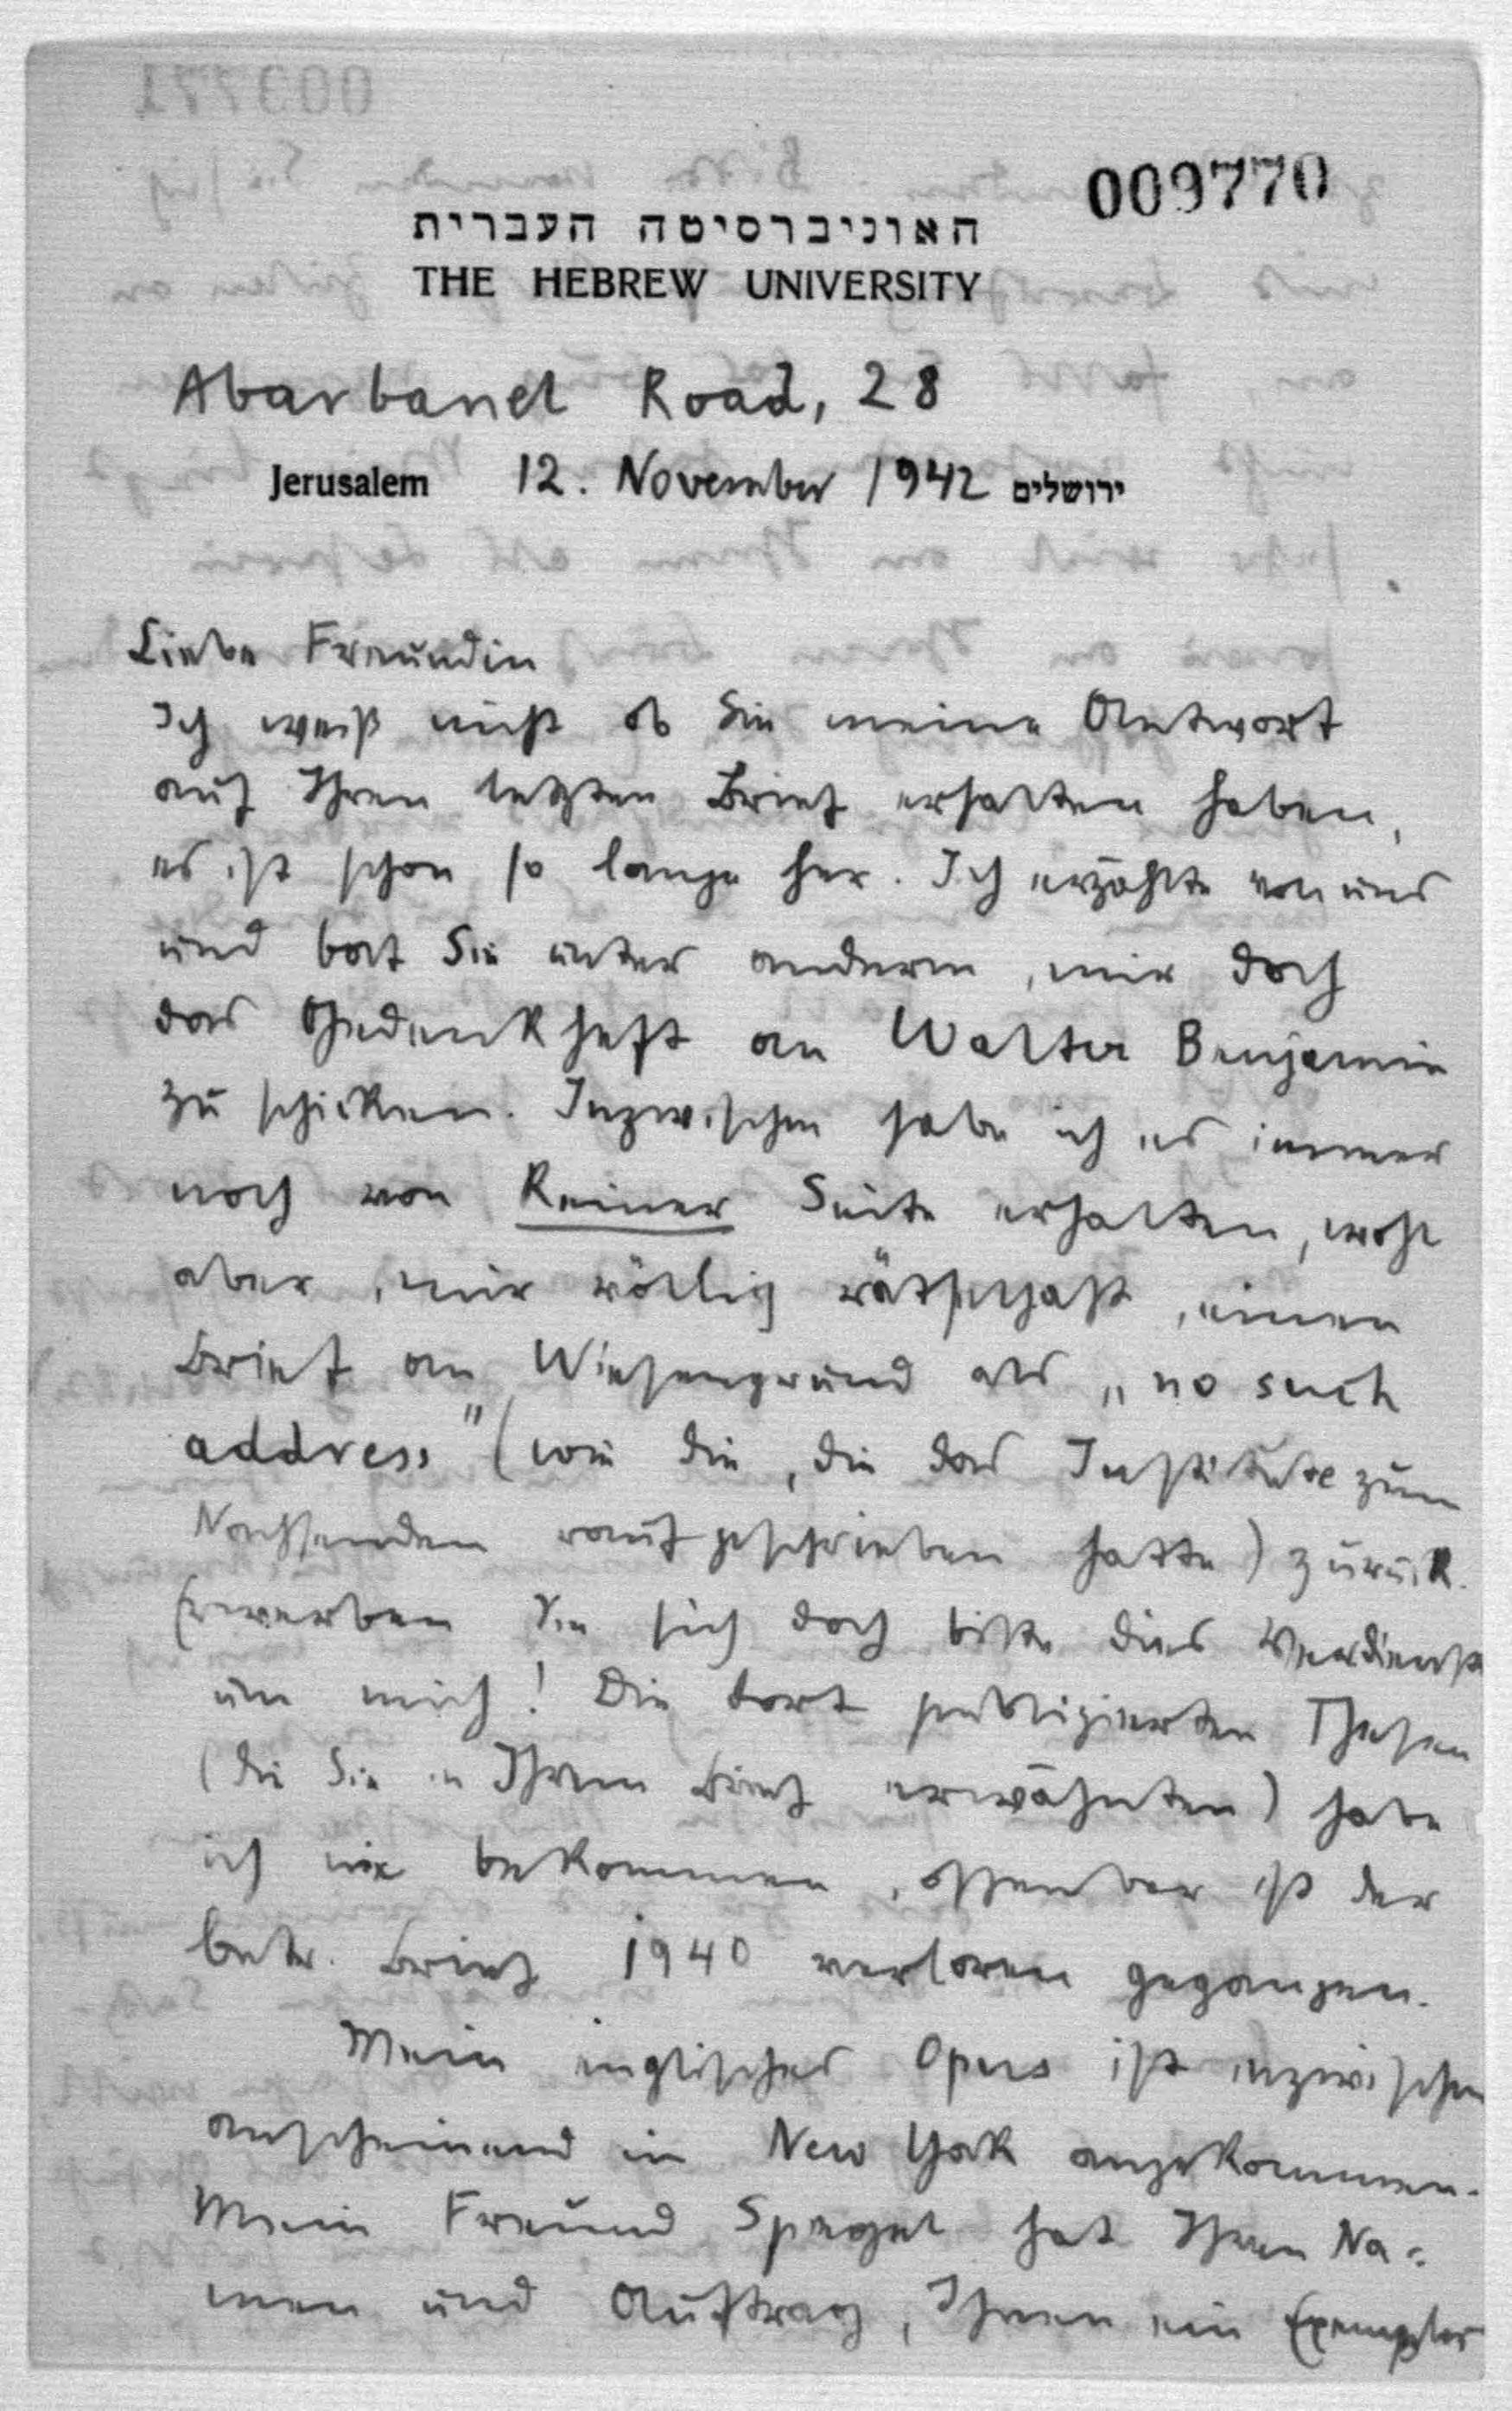 009770
האוניברסיטה העברית
THE HEBREW UNIVERSITY
Abarbanel Road, 28
Jerusalem 12. November 1942 ירושלים
Liebe Freundin
Ich weiß nicht ob Sie meine Antwort
auf Ihren letzten Brief erhalten haben,
es ist schon so lange her. Ich erzählte von uns
und bat Sie unter anderm, mir doch
das Gedenkheft an Walter Benjamin
zu schicken. Inzwischen habe ich es immer
noch von keiner Seite erhalten, wohl
aber, mir völlig rätselhaft, einen
Brief an Wiesengrund als „no such
address" (wie die, die das Institute zum
Nachsenden rauf geschrieben hatte) zurück.
Erwerben Sie sich doch bitte dies Verdienst
um mich! Die dort publizierten Thesen
(die Sie in Ihrem Brief erwähnten) habe
ich nie bekommen, offenbar ist der
betr. Brief 1940 verloren gegangen.
Mein englisches Opus ist inzwischen
anscheinend in New York angekommen.
Mein Freund Spiegel hat Ihren Na-
men und Auftrag, Ihnen ein Exemplar